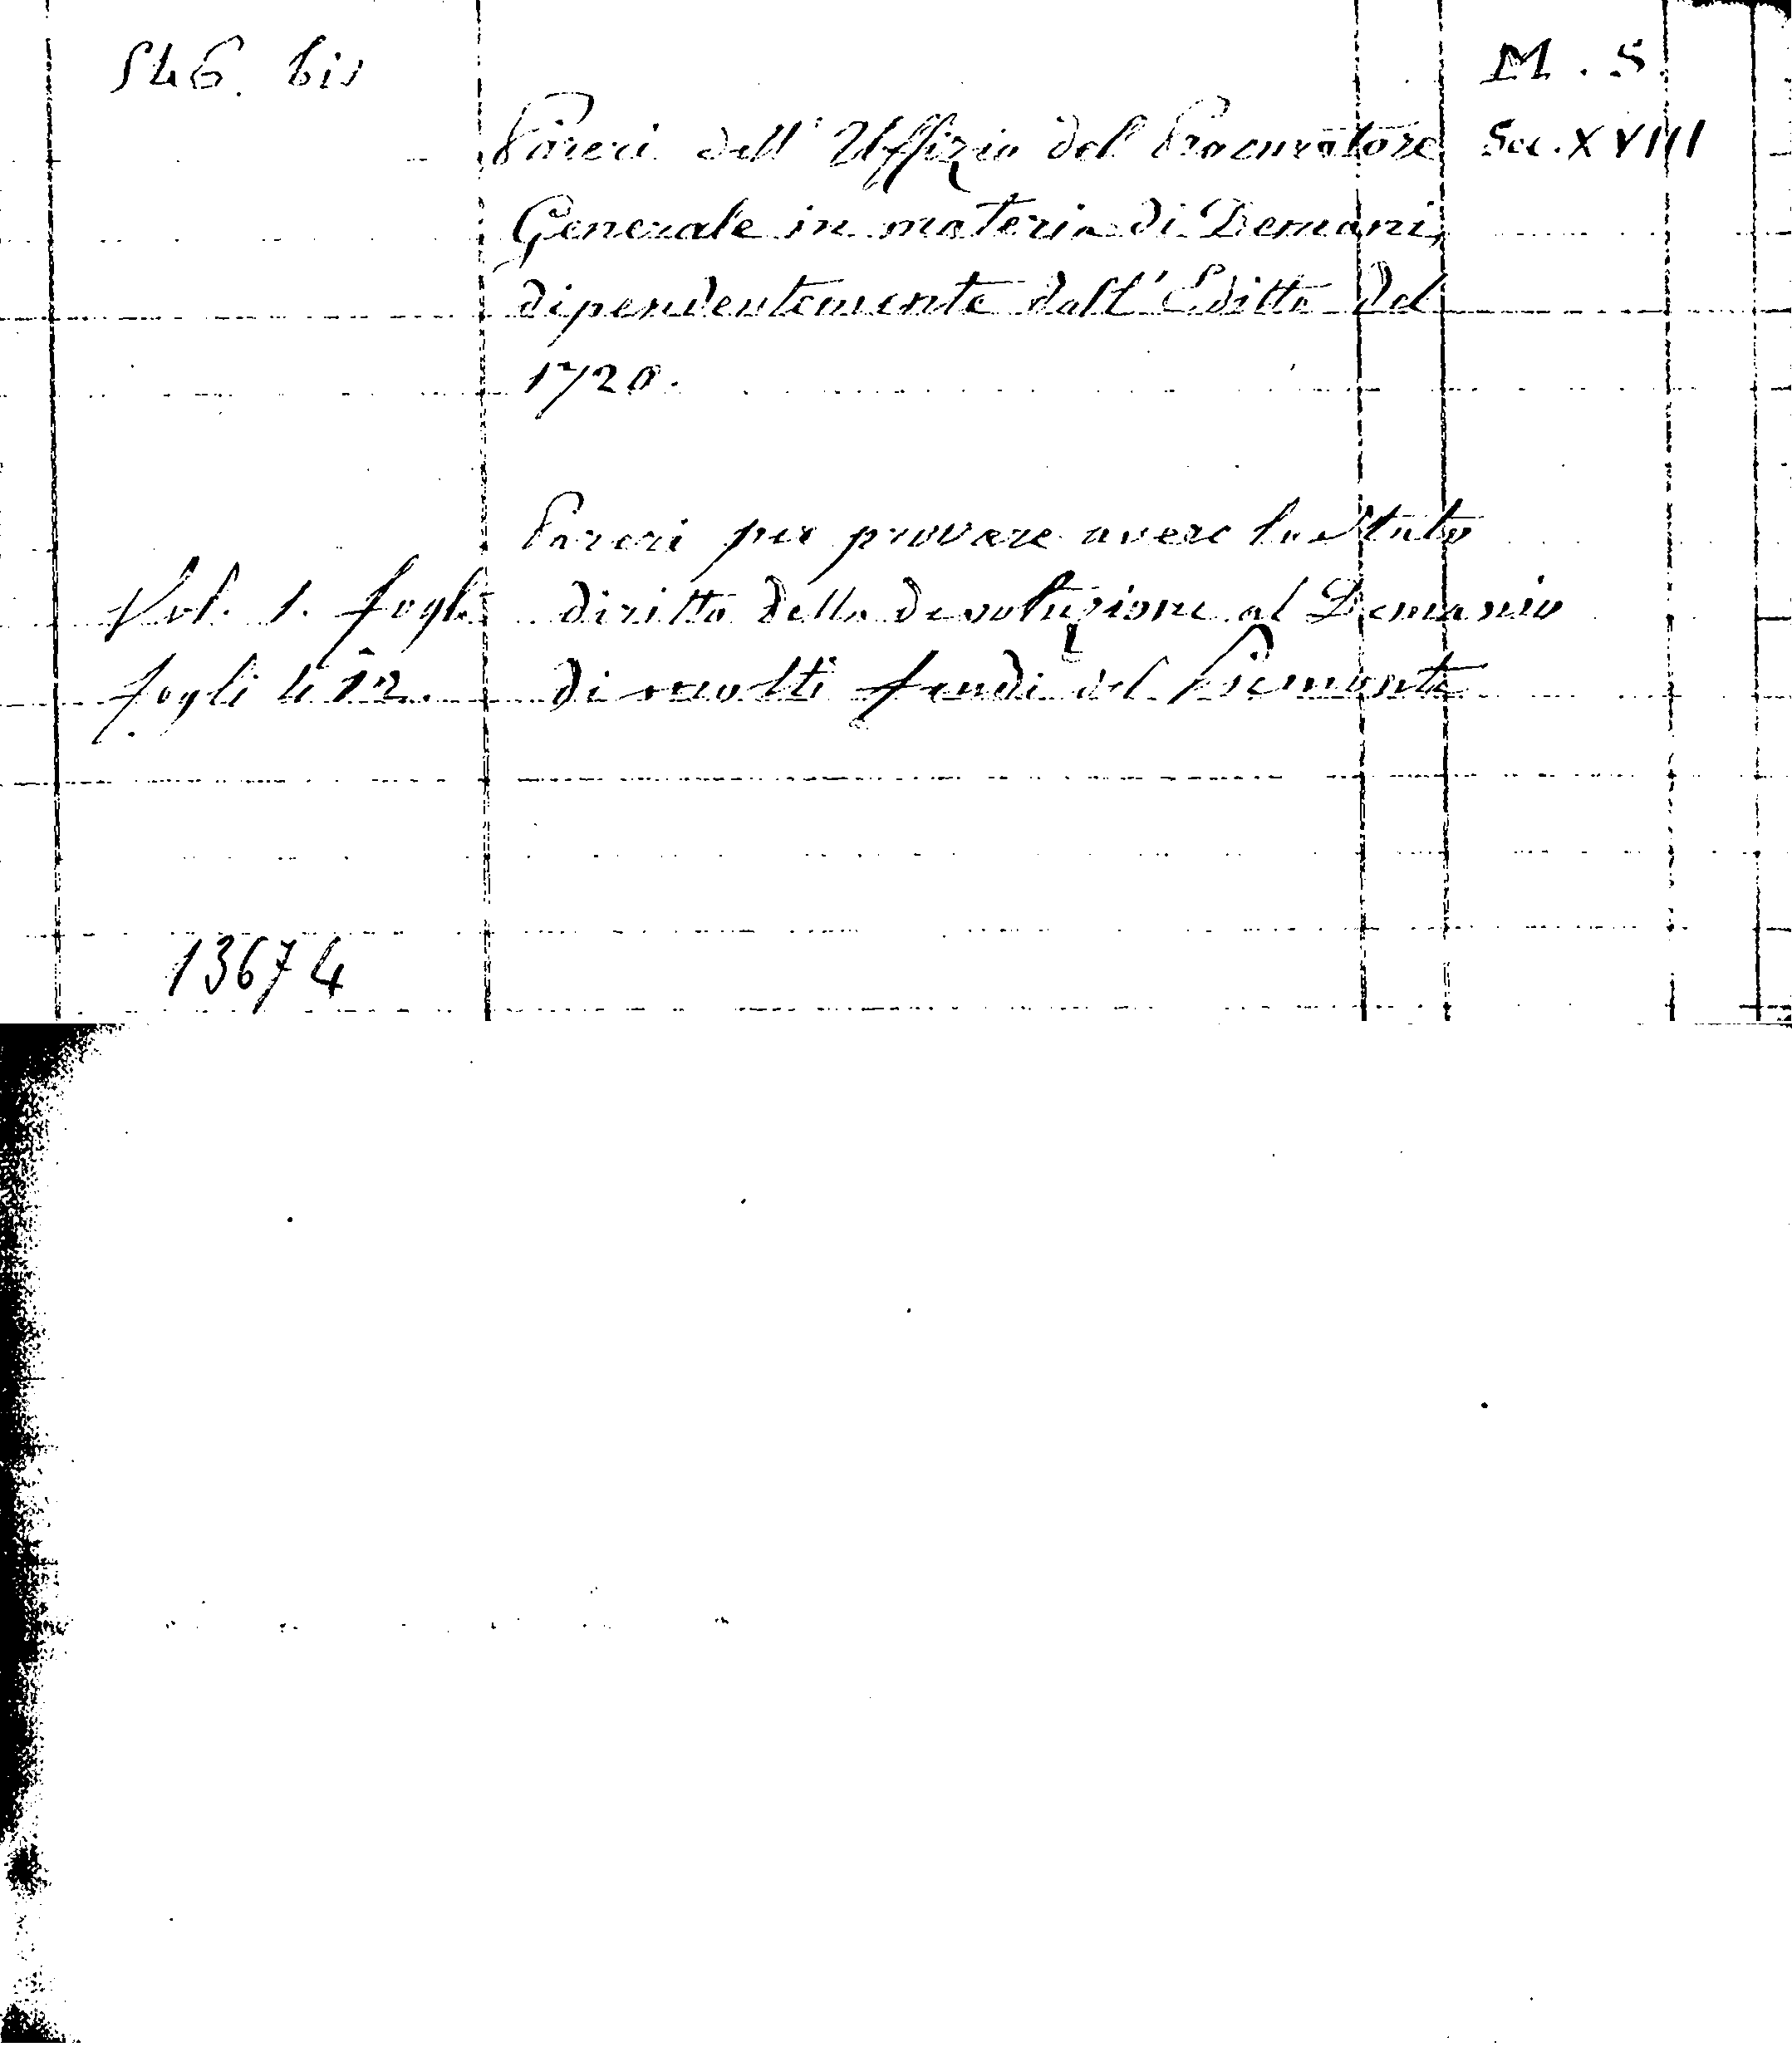 546. bis
M. S.
Pareri dell' Uffizio del Procuratore
Sec. XVIII
Generale in materia di Demani,
dipendentemente dall' Editto del
1720.
Pareri per provare avere lo Stato
Vol. 1. fogli
diritto della devoluzione al Demanio
fogli 412.
di molti feudi del Piemonte
13674